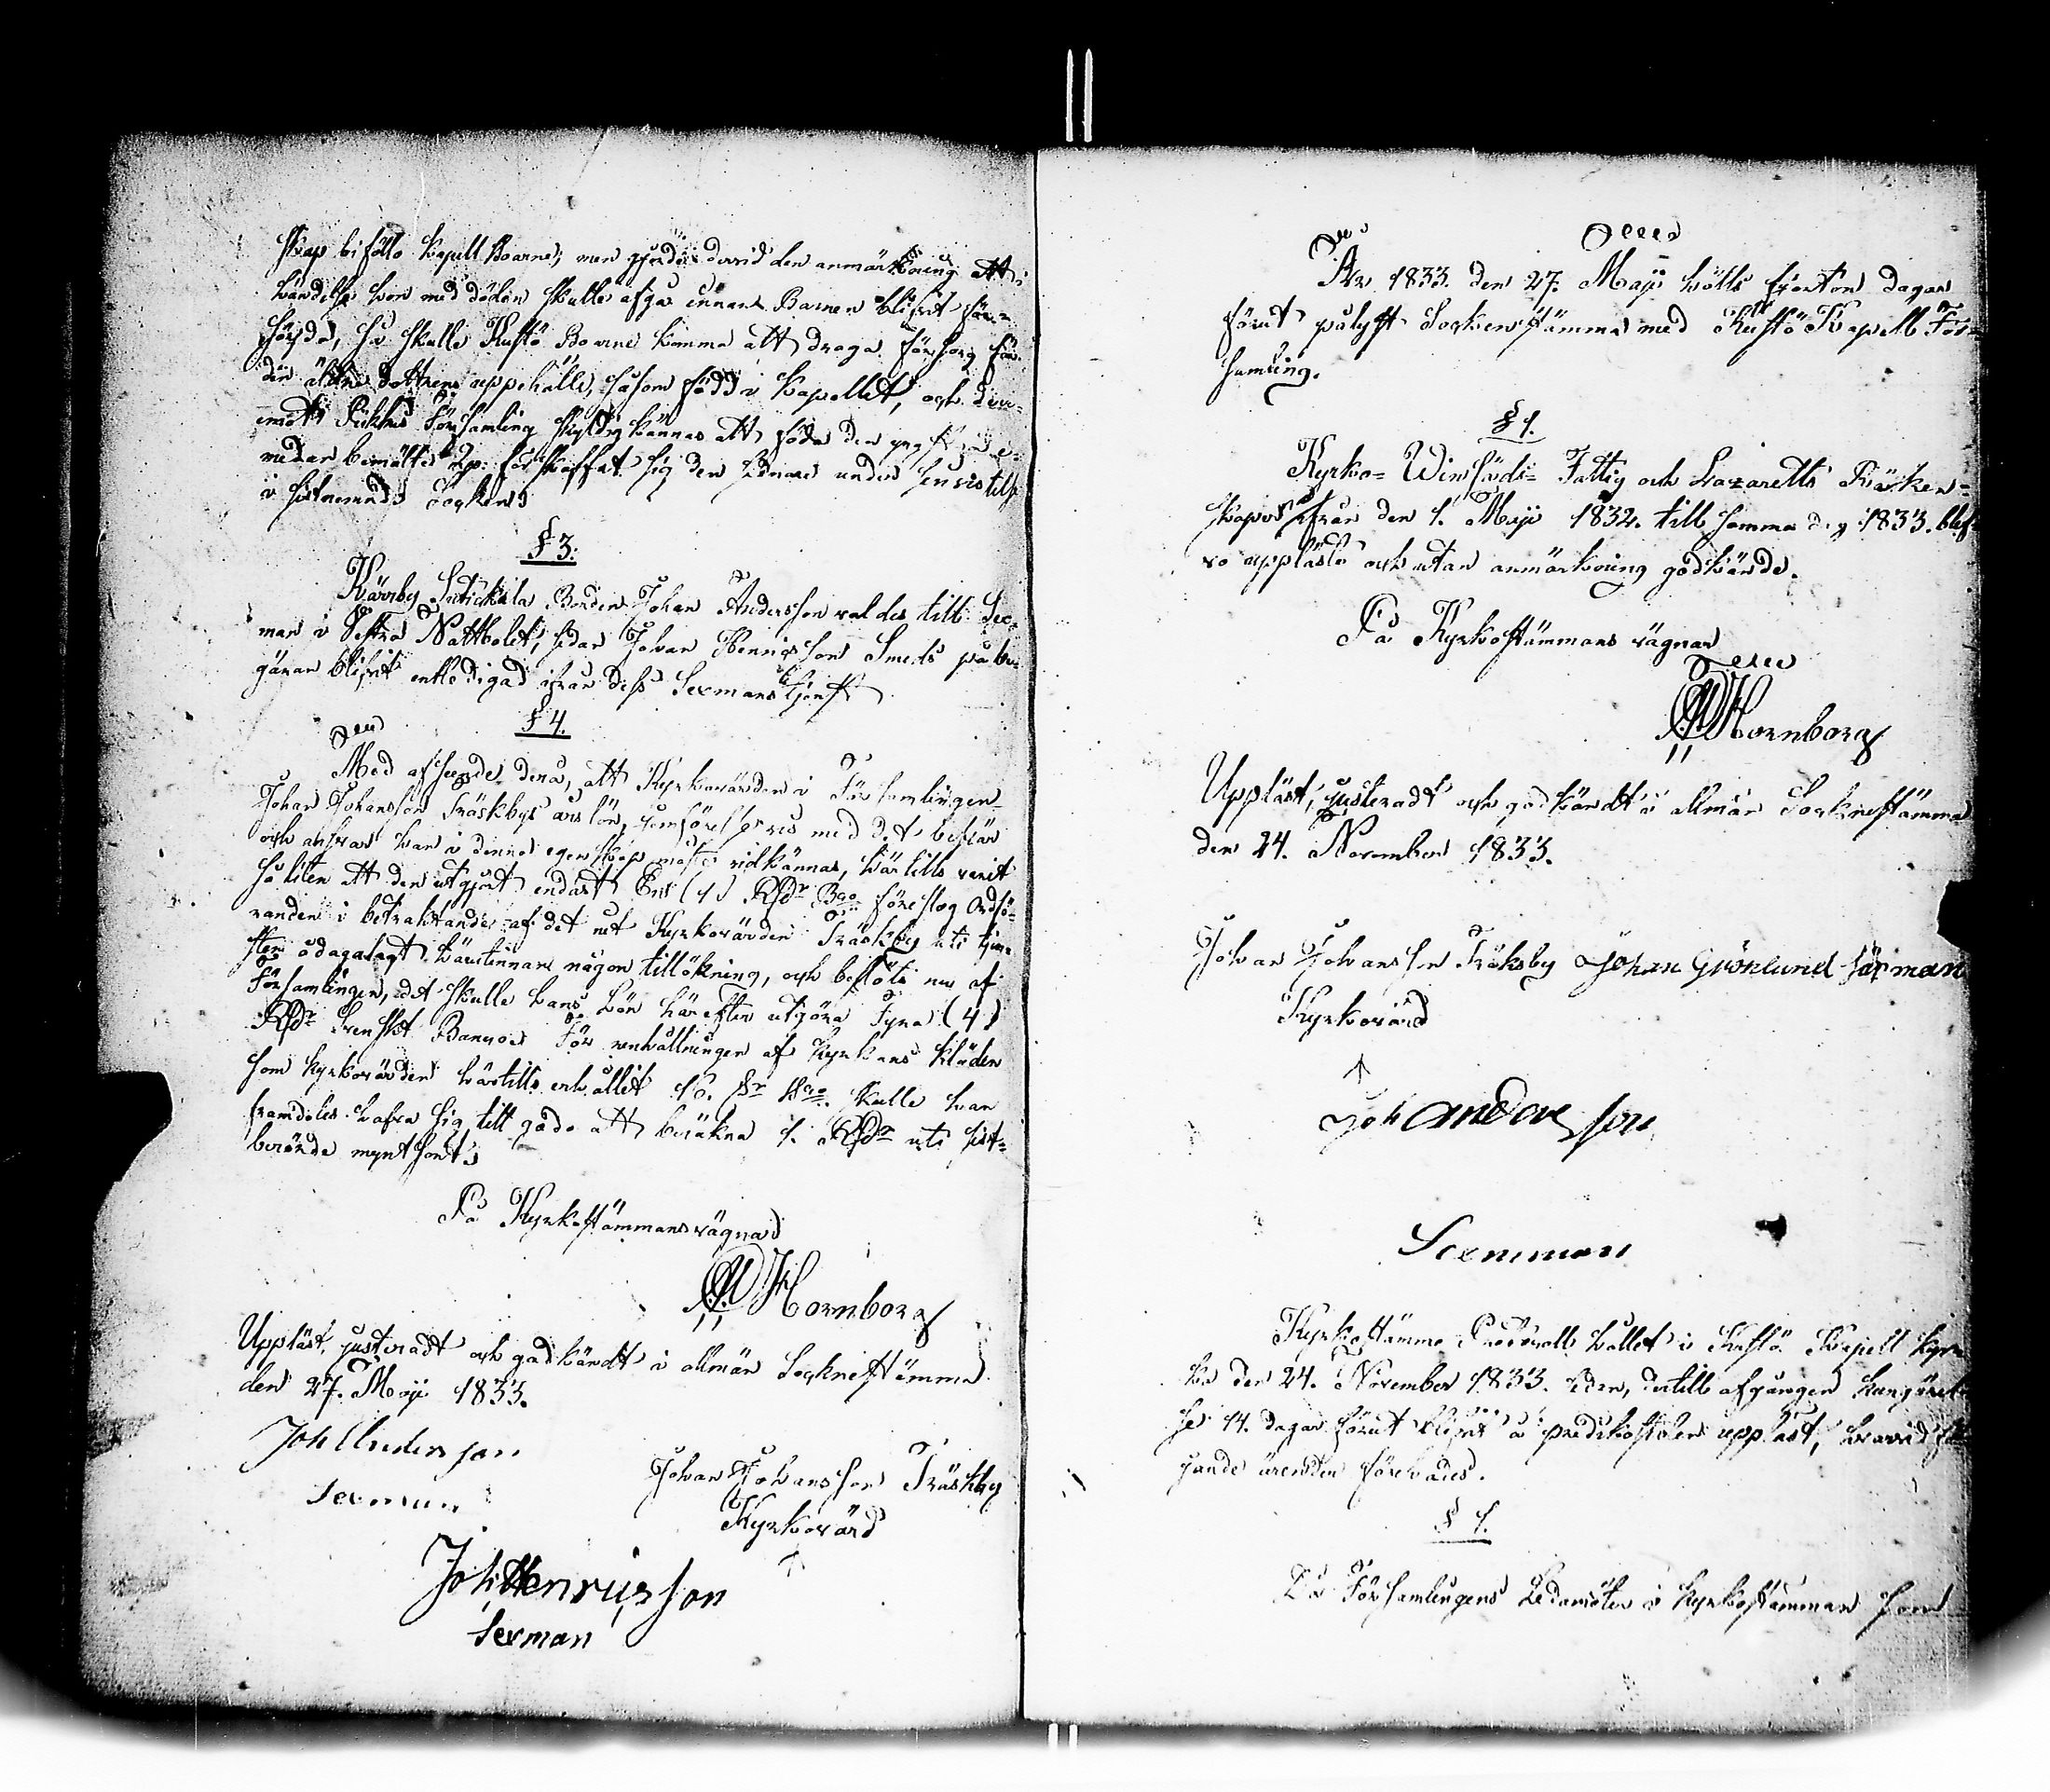 skap biföllo Kapell Boarne; men gjorde dervid den anmärkning att i
händelse hon med döden skulle afgå innan Barnen blifvit för-
sörjda, så skulle Kustö Boarne komma att draga försorg för
den äldre dottrens uppehälle, såsom född i Kapellet, och der-
emot Pikkis Församling skyldig kännas att föda den yngsta e-
medan bemälte förskaffat sig den sednare under sin vistelse
i sistnemnde Socken.
§ 3.
Kärrby Bonden Johan Andersson valdes till Sex-
man i Vestra Nattbolet, sedan Johan Henricsson Smeds på be-
gäran blifvit entledigad ifrån dess Sexmans tjenst.
§ 4.
Med afseende derå, att Kyrkovärden i Församlingen
Johan Johansson Träskbys årslön, jemförelsevis med det besvär
och ansvar han i denna egenskap måste vidkännas, härtills varit
så liten att den utgjort endast En (1) Rdr Bco föreslog Ordfö-
randen i betraktande af det nit Kyrkovärden Träskby uti tjen-
sten ådagalagt härutinnan någon tillökning, och beslöts nu af
Församlingen, det skulle hans Lön härefter utgöra Fyra (4)
Rdr Svenskt Banco. För renhållningen af Kyrkans kläder
som Kyrkovärden härtills erhållit 16. sr Bco. skulle han
framdeles hafva sig till godo att beräkna 1. Rdr uti sist-
berörde myntsort.
På Kyrkostämmans vägnar
Hornborg
Uppläst, justeradt och godkändt i allmän Sockenstämma
den 27. Maji 1833.
Joh Andersson
Sexman
Johan Johansson Träskby
Kyrkovärd
Joh: Henricsson
Sexman
År 1833. den 27. Maji hölls fjorton dagar
förut pålyst Sockenstämma med Kustö Kapell För-
samling.
§ 1.
Kyrko- Winhjelps- Fattig och Lazaretts Räken-
skaper ifrån den 1. Maji 1832. till samma dag 1833. blef-
vo upplästa och utan anmärkning godkände.
På Kyrkostämmans vägnar
Hornborg
Uppläst, justeradt och godkändt i allmän Sockenstämma
den 24. November 1833.
Johan Johansson Träksby Johan Grönlund säxman
Kyrkovärd
Joh andersson
Sexmman
Kyrkostämmo Protocoll hållet i Kustö Kapell Kyr-
ka den 24. November 1833. sedan, dertill afgången kungörel-
se 14. dagar förut blifvit å predikostolen uppläst, hvarvid föl-
jande ärenden förehades.
§ 1.
Då Församlingens Ledamöter i Kyrkostämman som